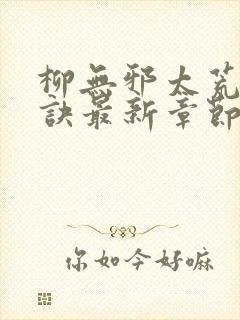 柳無邪太荒
訣最新章節
你如今好嘛